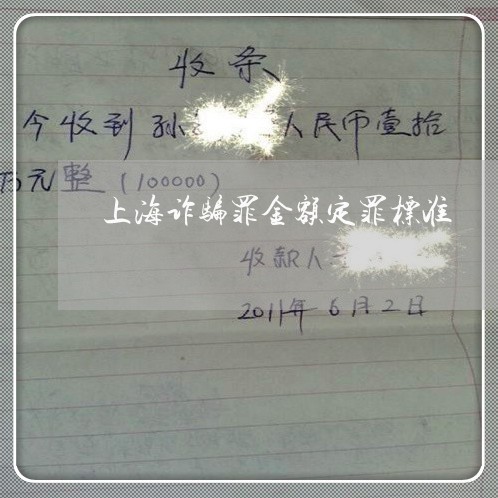 收条
今收到孙 人民币壹拾
万元整(100000)
上海诈骗罪金额定罪标准
收款人
2011年6月2日